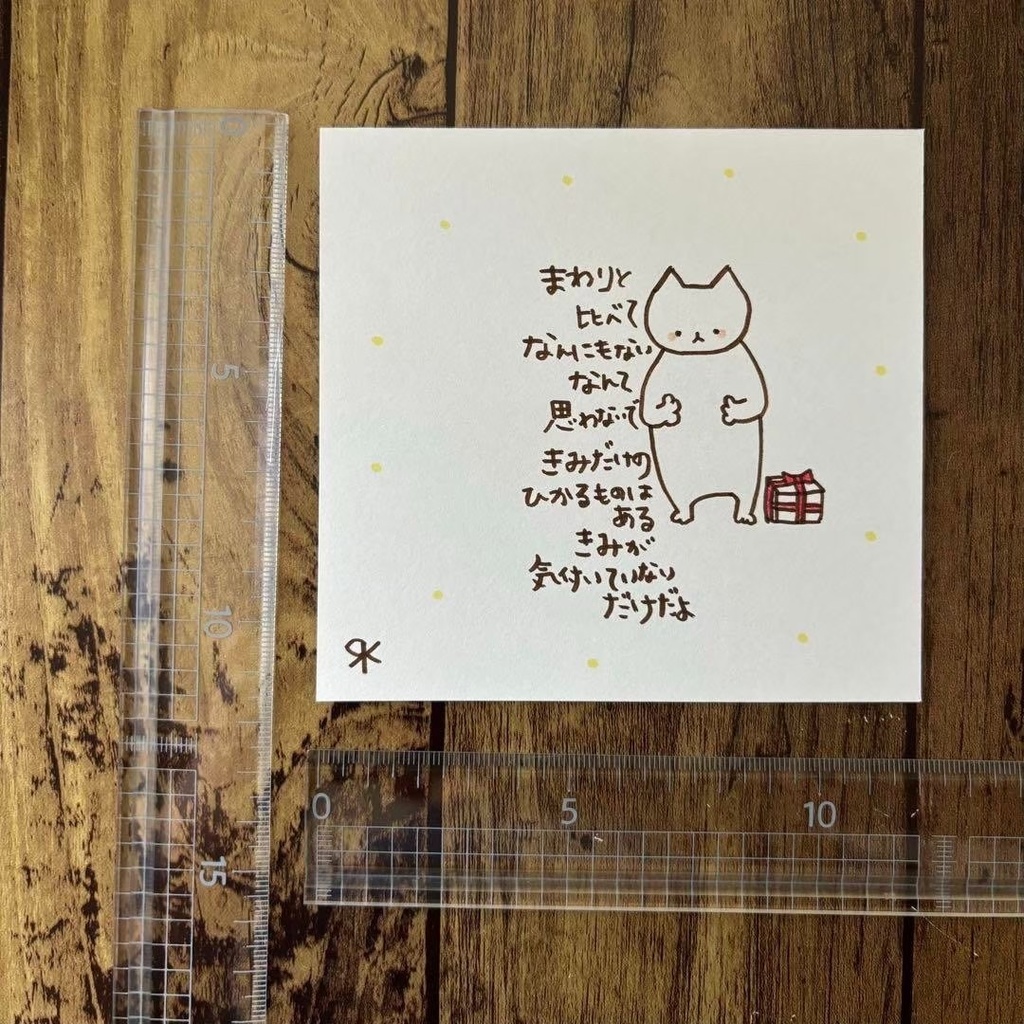 まわりと
比べて
なんにもない
なんて
思わないで
きみだけの
ひかるものは
ある
きみが
気付いていない
だけだよ
RK
0
5
10
15
0
5
10